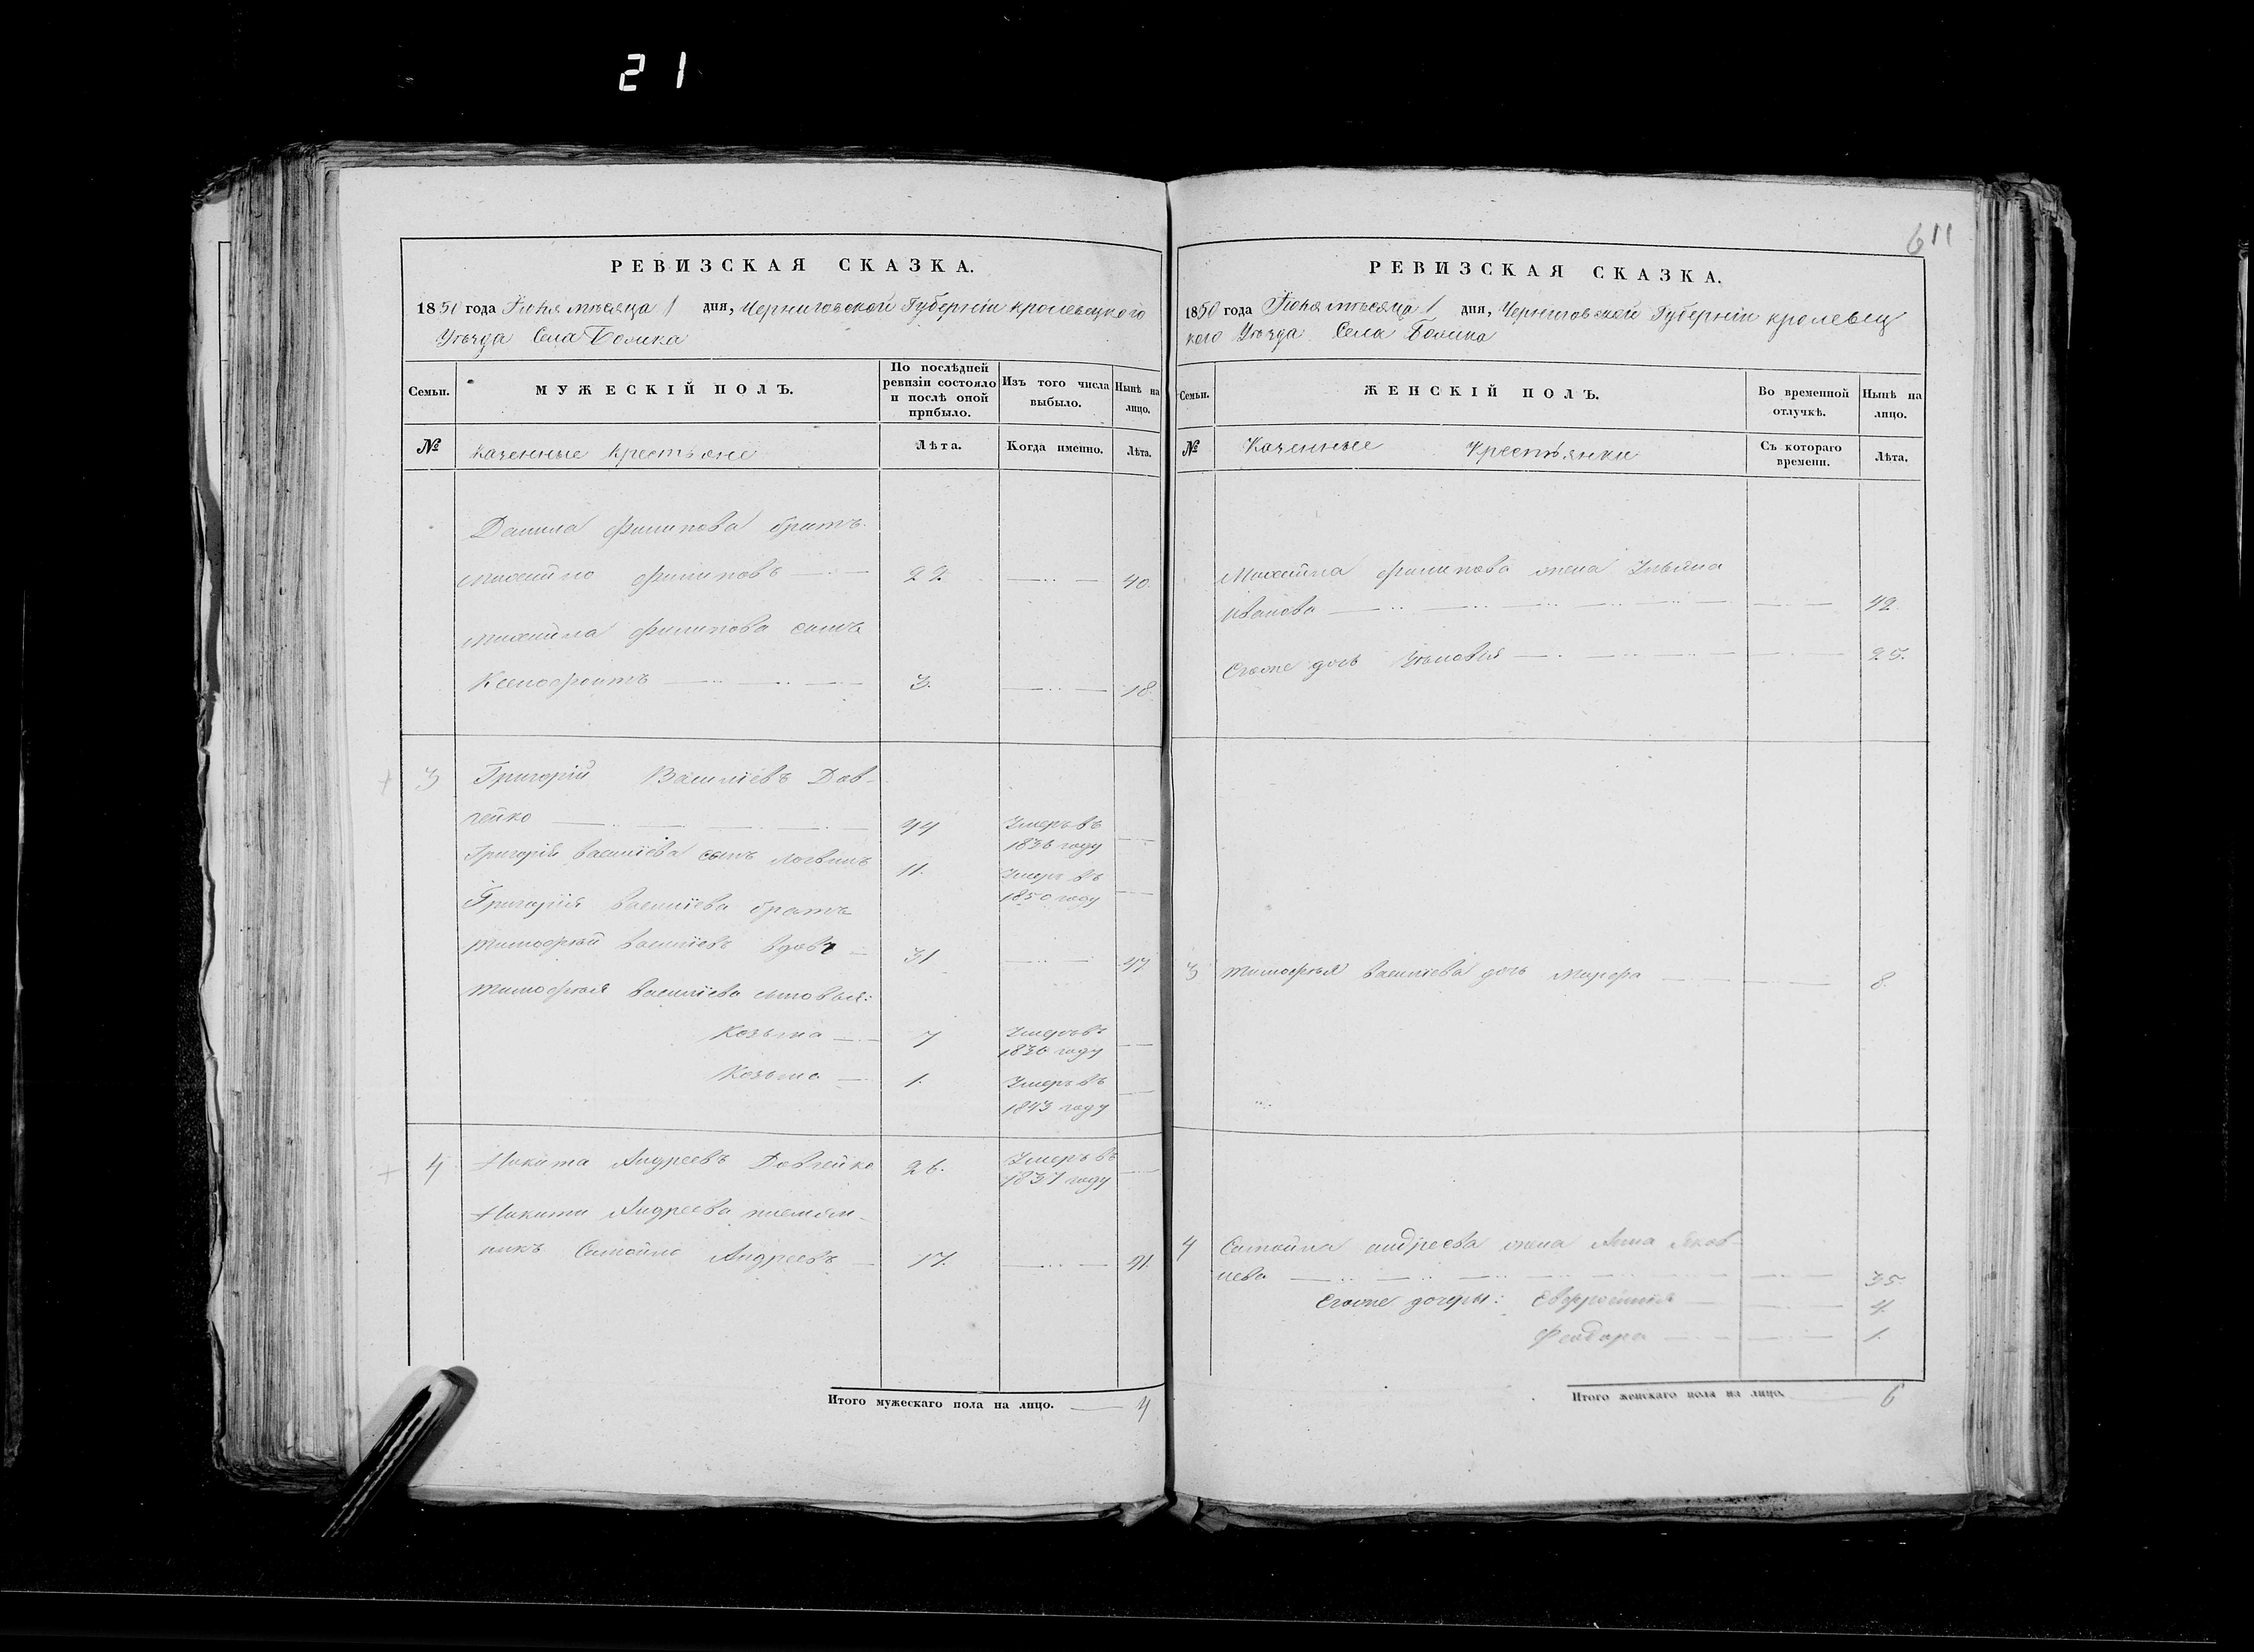 21
611
РЕВИЗСКАЯ СКАЗКА.
1850 года Іюня мѣсяца 1 дня, Черниговской Губерніи кролевецкого
Уѣзда Села
Семьи.
МУЖЕСКІЙ ПОЛЪ.
По послѣдней ревизіи состояло и послѣ оной прибыло.
Изъ того числа выбыло.
Нынѣ на лицо.
№
Казенные Крестьяне
Лѣта.
Когда именно.
Лѣта.
Данила Филипова братъ
Михайло Филиповъ 22. 40.
Михайла Филипова сынъ
Ксенофонтъ 3. 18.
3 Григорій Василіевъ Дов-
гейко 44 Умеръ въ
1836 году
Григорія Василіева сынъ Логвинъ 11. Умеръ въ
1850 году
Григорія Василіева братъ
Тимофей Василіевъ вдовъ 31 47
Тимофея Василіева сыновья:
Козьма 7 Умеръ въ
1836 году
Козьма 1. Умеръ въ
1843 году
4 Никита Андреевъ Довгейко 26. Умеръ въ
1837 году
Никиты Андреева племян-
никъ Самойло Андреевъ 17.
Итого мужескаго пола на лицо. 4
РЕВИЗСКАЯ СКАЗКА.
1850 года Іюня мѣсяца 1 дня, Черниговской Губерніи кролевец
кого Уѣзда Села
Семьи.
ЖЕНСКІЙ ПОЛЪ.
Во временной отлучкѣ.
Нынѣ на лицо.
№
Казенные Крестьянки
Съ котораго времени.
Лѣта.
Михайла Филипова жена Ульяна
Иванова 42.
Егоже дочь 25.
3 Тимофея Василіева дочь Марфа 8.
4 Самойла андреева жена Анна Яков-
лева 35.
Егоже дочери: Евфросинія 4.
Феодора 1.
Итого женскаго пола на лицо. 6